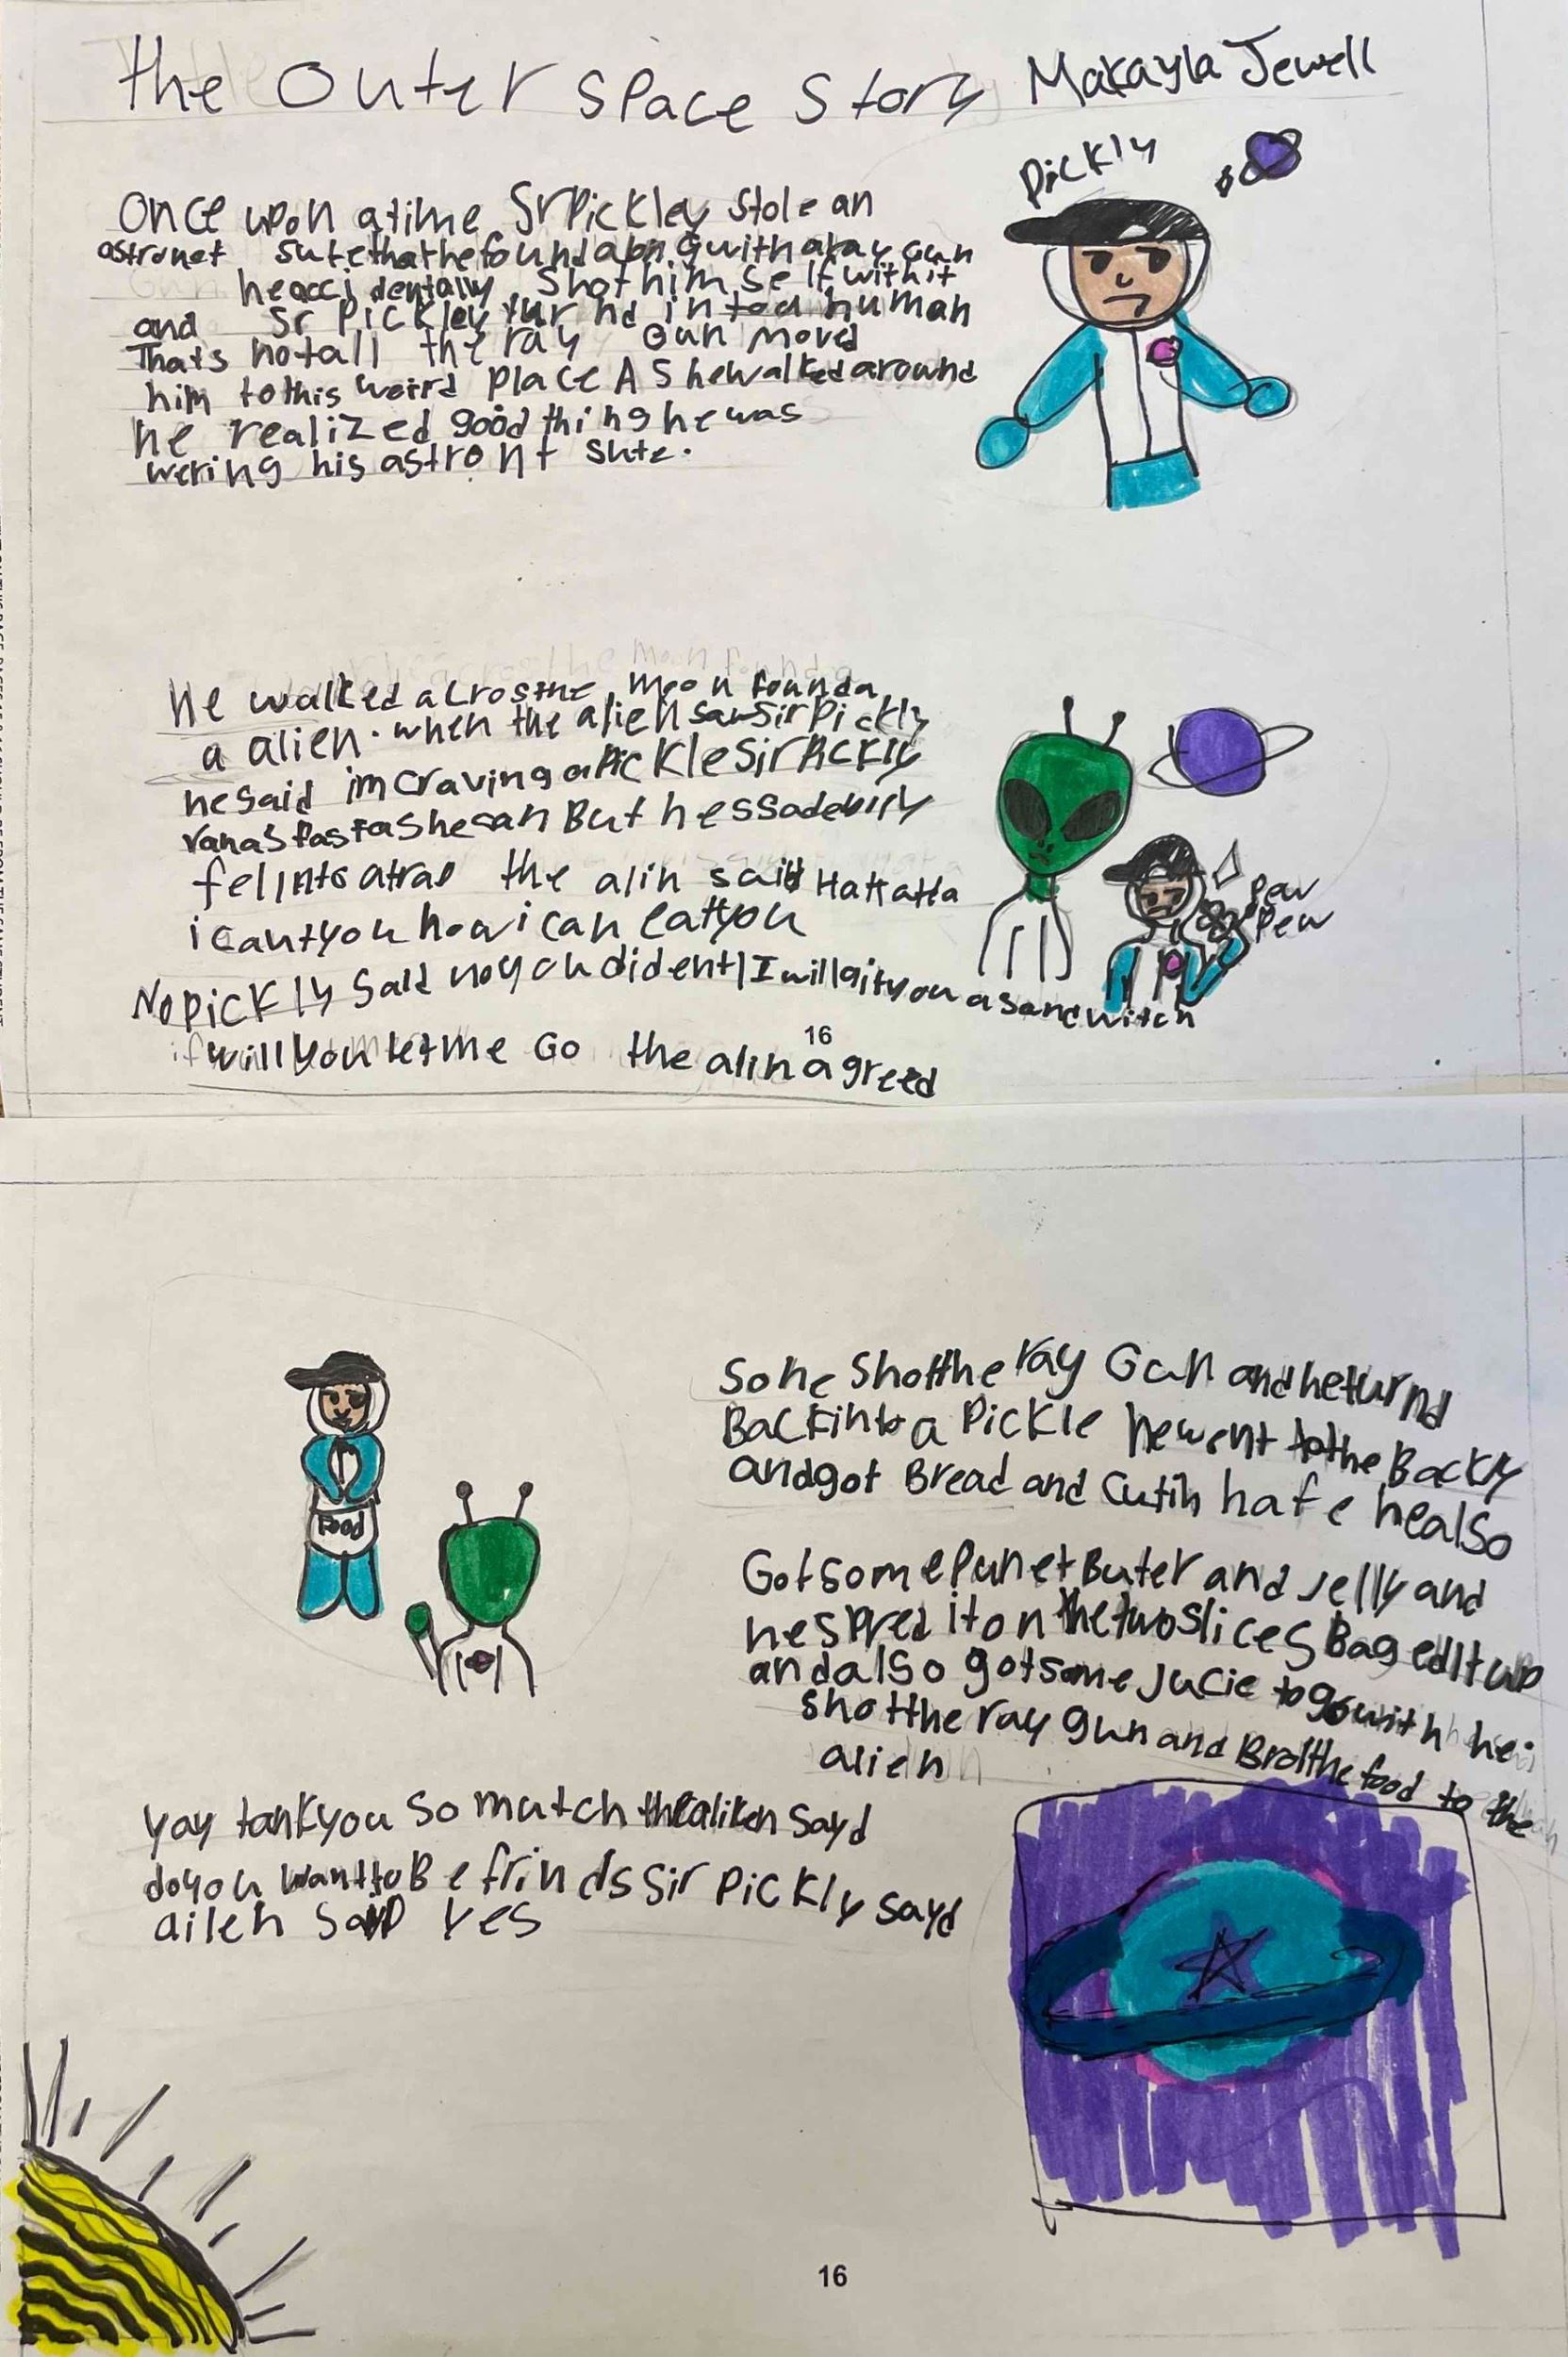 the Outer space story Makayla Jewell
Pickly
Once upon a time Sr Pickley stole an
astronet sute that he found along with a ray Gun
he accidentally shot him self with it
and Sr Pickley turnd in to a human
Thats not all the ray Gun moved
him to this weird place AS he walked around
he realized good thing he was
wering his astront sute.
He walked acros the moon found a
a alien. when the alien saw Sir Pickly
he said im craving a Pickle Sir Pickly
ran as fast as he can But he
fel into a trap the alin said Ha Ha Ha
i caut you how i can eat you
Pew
Pew
No Pickly said no you dident I will git you a sandwitch
if will you let me Go the alin agreed
16
So he shot the ray Gun and he turnd
Back into a Pickle he went to the
and got Bread and Cut in hafe he also
Food
Got some Punet Buter and Jelly and
he spred it on the two slices Baged It up
and also got some Jucie to go with
shot the ray gun and the food to the
alien
yay tank you so mutch the sayd
do you want to Be frinds Sir Pickly sayd
ailen said yes
16